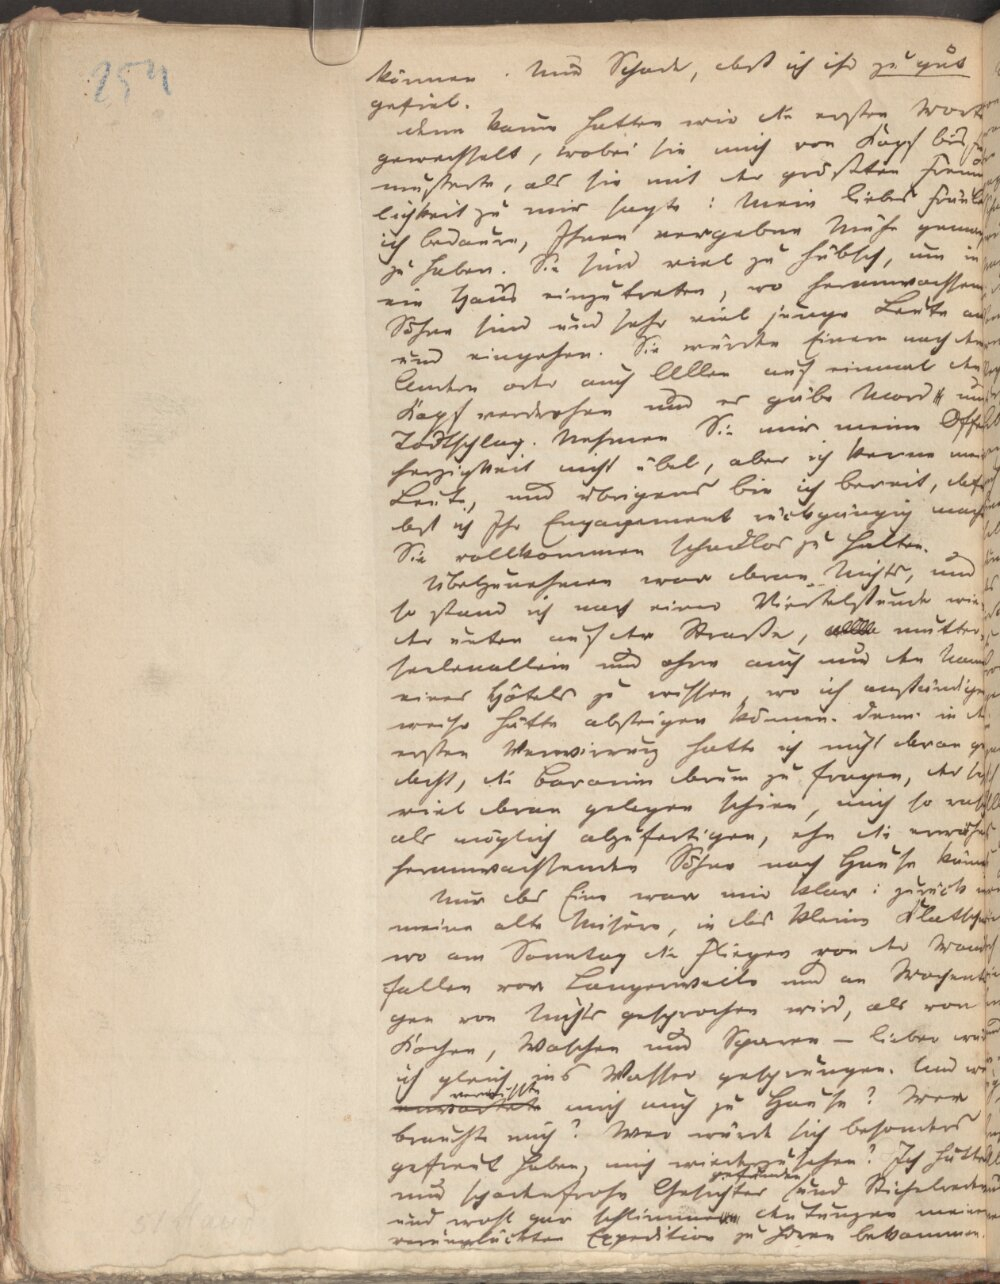 254
können. Nur Schade, daß ich ihr zu gut
gefiel.
Denn kaum hatten wir die ersten Worte
gewechselt, wobei sie mich von Kopf bis zu
musterte, als sie mit der größten Freund
lichkeit zu mir sagte: Mein liebes Fräulein
ich bedaure, Ihnen vergebne Mühe gemacht
zu haben. Sie sind viel zu hübsch, um in
ein Haus einzutreten, wo heranwachsende
Söhne sind und sehr viel junge Leute aus
und eingehen. Sie würden Einem nach dem
Andern oder auch Allen auf einmal den
Kopf verdrehen und es gäbe Mord und
Todtschlag. Nehmen Sie mir meine Offen
herzigkeit nicht übel, aber ich kenne meine
Leute, und übrigens bin ich bereit, da
ich Ihr Engagement rückgängig mache
Sie vollkommen schadlos zu halten.
Übelzunehmen war daran Nichts, und
so stand ich nach einer Viertelstunde wie
der unten auf der Straße, mutter
seelenallein und ohne auch nur den Namen
eines Hôtels zu wissen, wo ich anständiger
weise hätte absteigen können. Denn in der
ersten Verwirrung hatte ich nicht daran ge
dacht, die Baronin drum zu fragen, der so
viel daran gelegen schien, mich so rasch
als möglich abzufertigen, ehe die erwähnten
heranwachsenden Söhne nach Hause kämen
Nur das Eine war mir klar: zurück in
meine alte Misère, in das kleine Klatschnest
wo am Sonntag die Fliegen von der Wand
fallen vor Langerweile und an Wochenta
gen von Nichts gesprochen wird, als von
Kochen, Waschen und Sparen – lieber wär
ich gleich ins Wasser gesprungen. Und wer
vermißte
erwartete mich auch zu Hause? Wer
brauchte mich? Wer würde sich besonders
gefreut haben, mich wiederzusehen? Ich hätte
gefunden
nur schadenfrohe Gesichter und Stichelreden
und wohl gar schlimme Deutungen meiner
verunglückten Expedition zu hören bekommen.